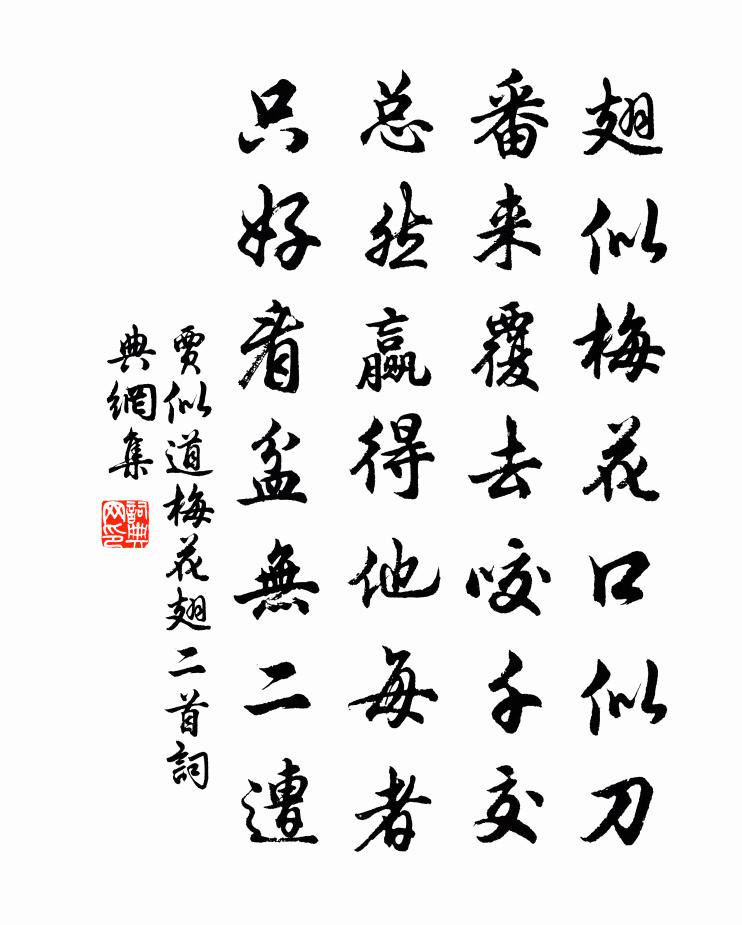 翅似梅花口似刀
番来覆去咬千交
总然赢得他每者
只好看盆無二遭
賈似道梅花翅二首詞
典網集
詞典网印